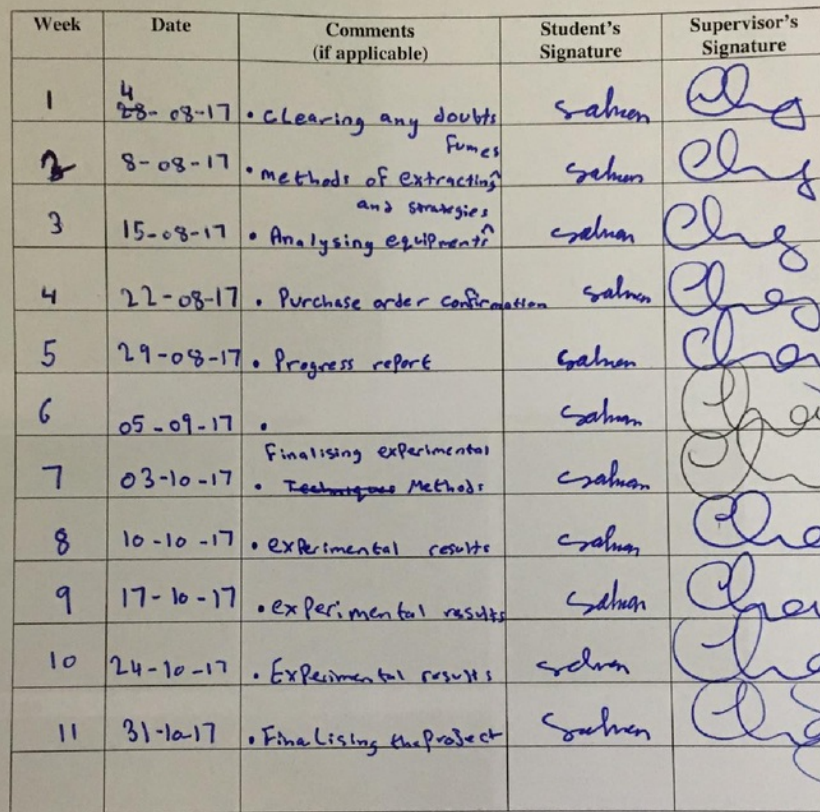 Week Date Comments (if applicable) Student's Signature Supervisor's Signature
1 4 28-08-17 • clearing any doubts Salman
2 8-08-17 • methods of extracting fumes Salman
3 15-08-17 • Analysing equipments and strategies Salman
4 22-08-17 • Purchase order confirmation Salman
5 29-08-17 • Progress report Salman
6 05-09-17 • Salman
7 03-10-17 • Finalising experimental Techniques Methods Salman
8 10-10-17 • experimental results Salman
9 17-10-17 • experimental results Salman
10 24-10-17 • Experimental results Salman
11 31-10-17 • Finalising the Project Salman